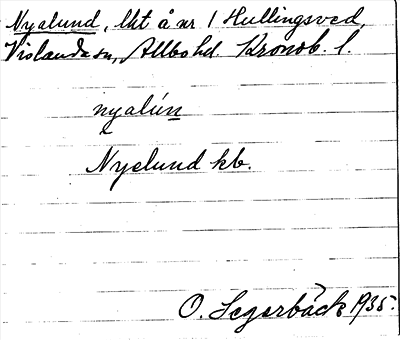 Nyalund, lht å nr 1 Hullingsved,
Vislanda sn, Allbo hd. Kronob. l.
nyalún
Nyelund kb.
O. Segerbäck 1935.